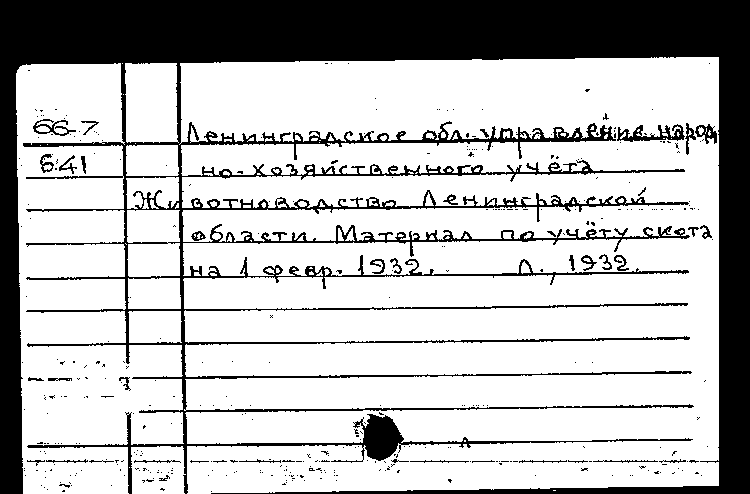 66-7 Ленинградское обл. управление народ
541 но-хозяйственного учёта
Животноводство Ленинградской
области. Материал по учёту скота
на 1 февр. 1932. Л., 1932.